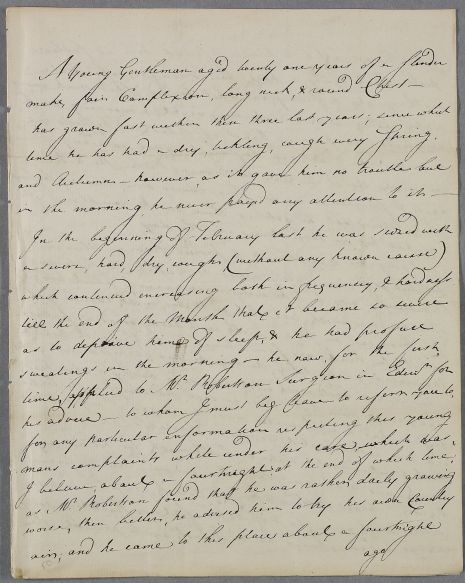 A Young Gentleman aged twenty one years of a slender
make, fair Complexion, long neck, & round Chest —
has grown fast within these three last years; since which
time he has had a dry, tickling, cough every Spring
and Autumn — however, as it gave him no trouble but
in the morning he never payed any attention to it —
In the beginning of February last he was seized with
a severe, hard, dry, cough (without any known cause)
which continued increasing both in frequency, & hardness
till the end of the Month that it became so severe
as to deprive him of sleep, & he had profuse
sweatings in the morning — he now, for the first
time, applied to Mr. Robertson Surgeon in Edinr. for
his advice — to whom I must beg leave to refer you to,
for any particular information respecting this young
mans complaints while under his care which was
I believe about a fourtnight at the end of which time,
as Mr. Robertson found that he was rather daily growing
worse, then better, he advised him to try his own Country
air, and he came to this place about a fourtnight
ago